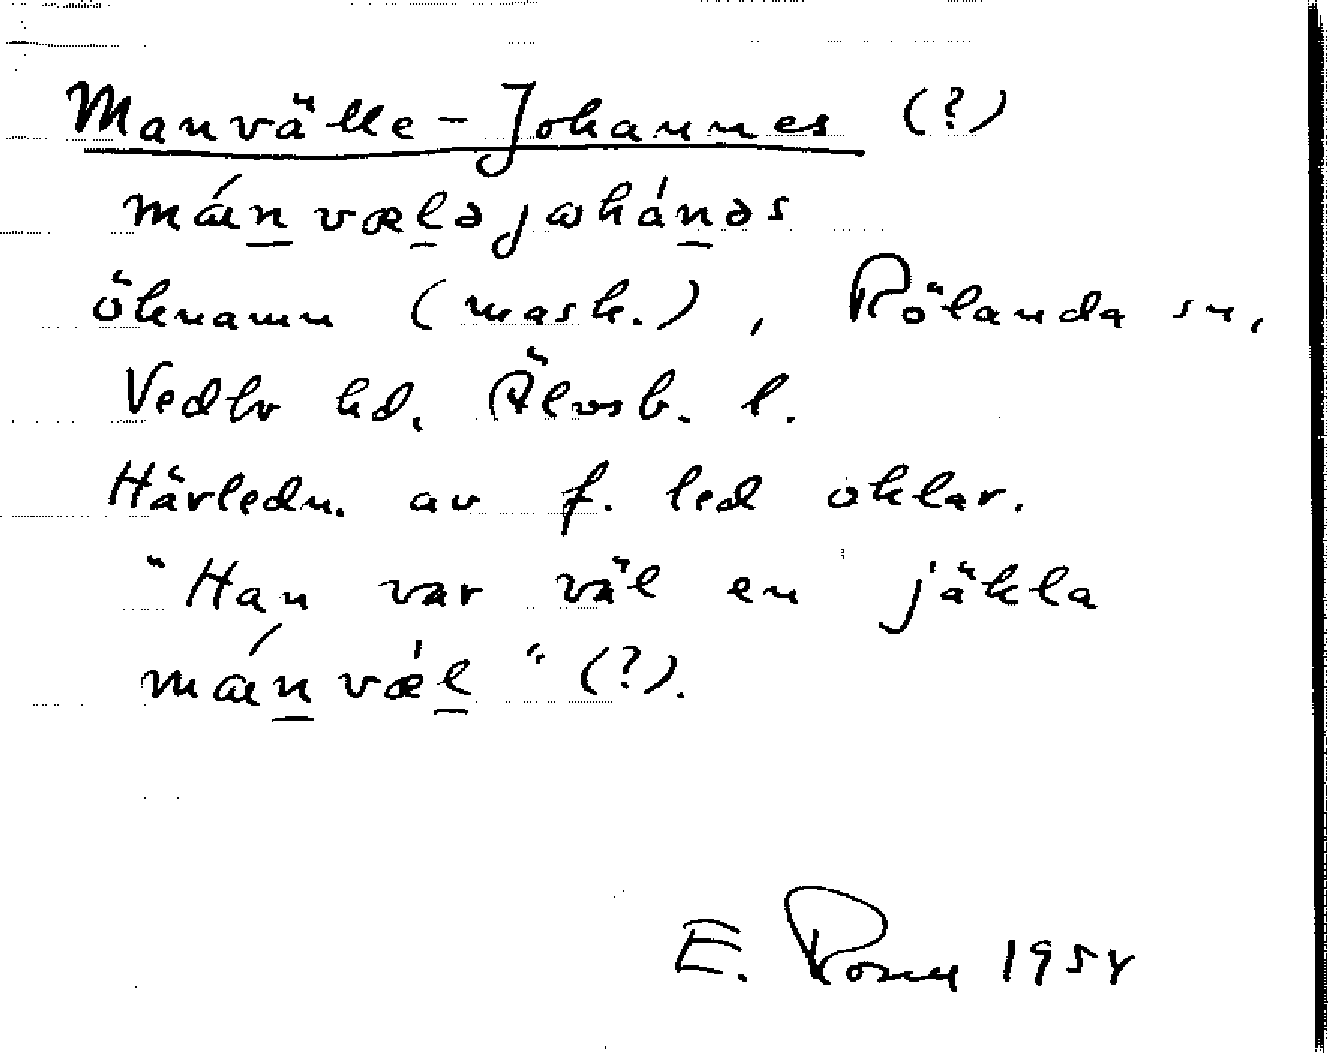 Manvälle-Johannes (?)
mánvæləjωhánəs
öknamn (mask.), Rölanda sn,
Vedbo hd, Älvsb. l.
Härledn. av f. led oklar.
"Han var väl en jäkla
mánvǽl" (?).
E. 1954